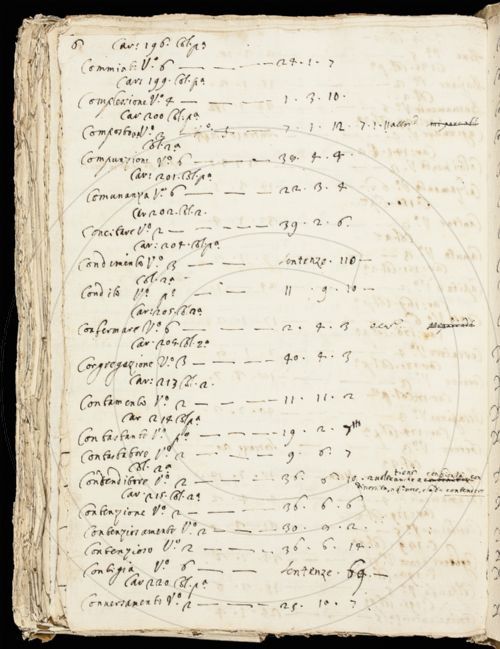 6 Car: 196. Col. pa
Commiati Vo. 6 — — — 24. 1. 7
Car: 199. Col. pa
Complessione Vo. 4 — — 1. 3. 10.
Car 200 Col. pa
Vo. 3 7. 1. 12. 7. 1. 11
Col. 2a
Compunzione Vo. 6 — — — 38. 4. 4.
Car: 201. Col. pa
Comunanza Vo. 6 — — — 22. 3. 4
Car 202. Col. 2.
Concitare Vo. 2 — — — 39. 2. 6.
Car: 204. Col. pa
Condimento Vo. 3 — — Sentenze. 110 —
Col. 2a
Condito Vo. po — — — 11. 9. 10 —
Car: 205. Col. 2a
Confermare Vo. 6 — — — 2. 4. 3
Car. 206. Col. 2a
Congregazione Vo. 3 — — — 40. 4. 3
Car: 213 Col. 2.
Contamento Vo. 2 — — — 11. 11. 2
Car 214 Col. pa
Contastante Vo. po — — — 19. 2. 7
Contastatore Vo. 2 — — — 9. 6. 7
Col. 2a
Contenditore Vo. 2 — — — 36. 6. 10.
Car: 215. Col. 2a
Contenzione Vo. 2 — — — 36. 6. 6
Contenziosamente Vo. 2 — — 30. 9. 2.
Contenzioso Vo. 2 — — — 36. 6. 14.
Contigia Vo. 6 — — Sentenze. 69. —
Car 220 Col. pa
Conversamento Vo. 2 — — — 25. 10. 7